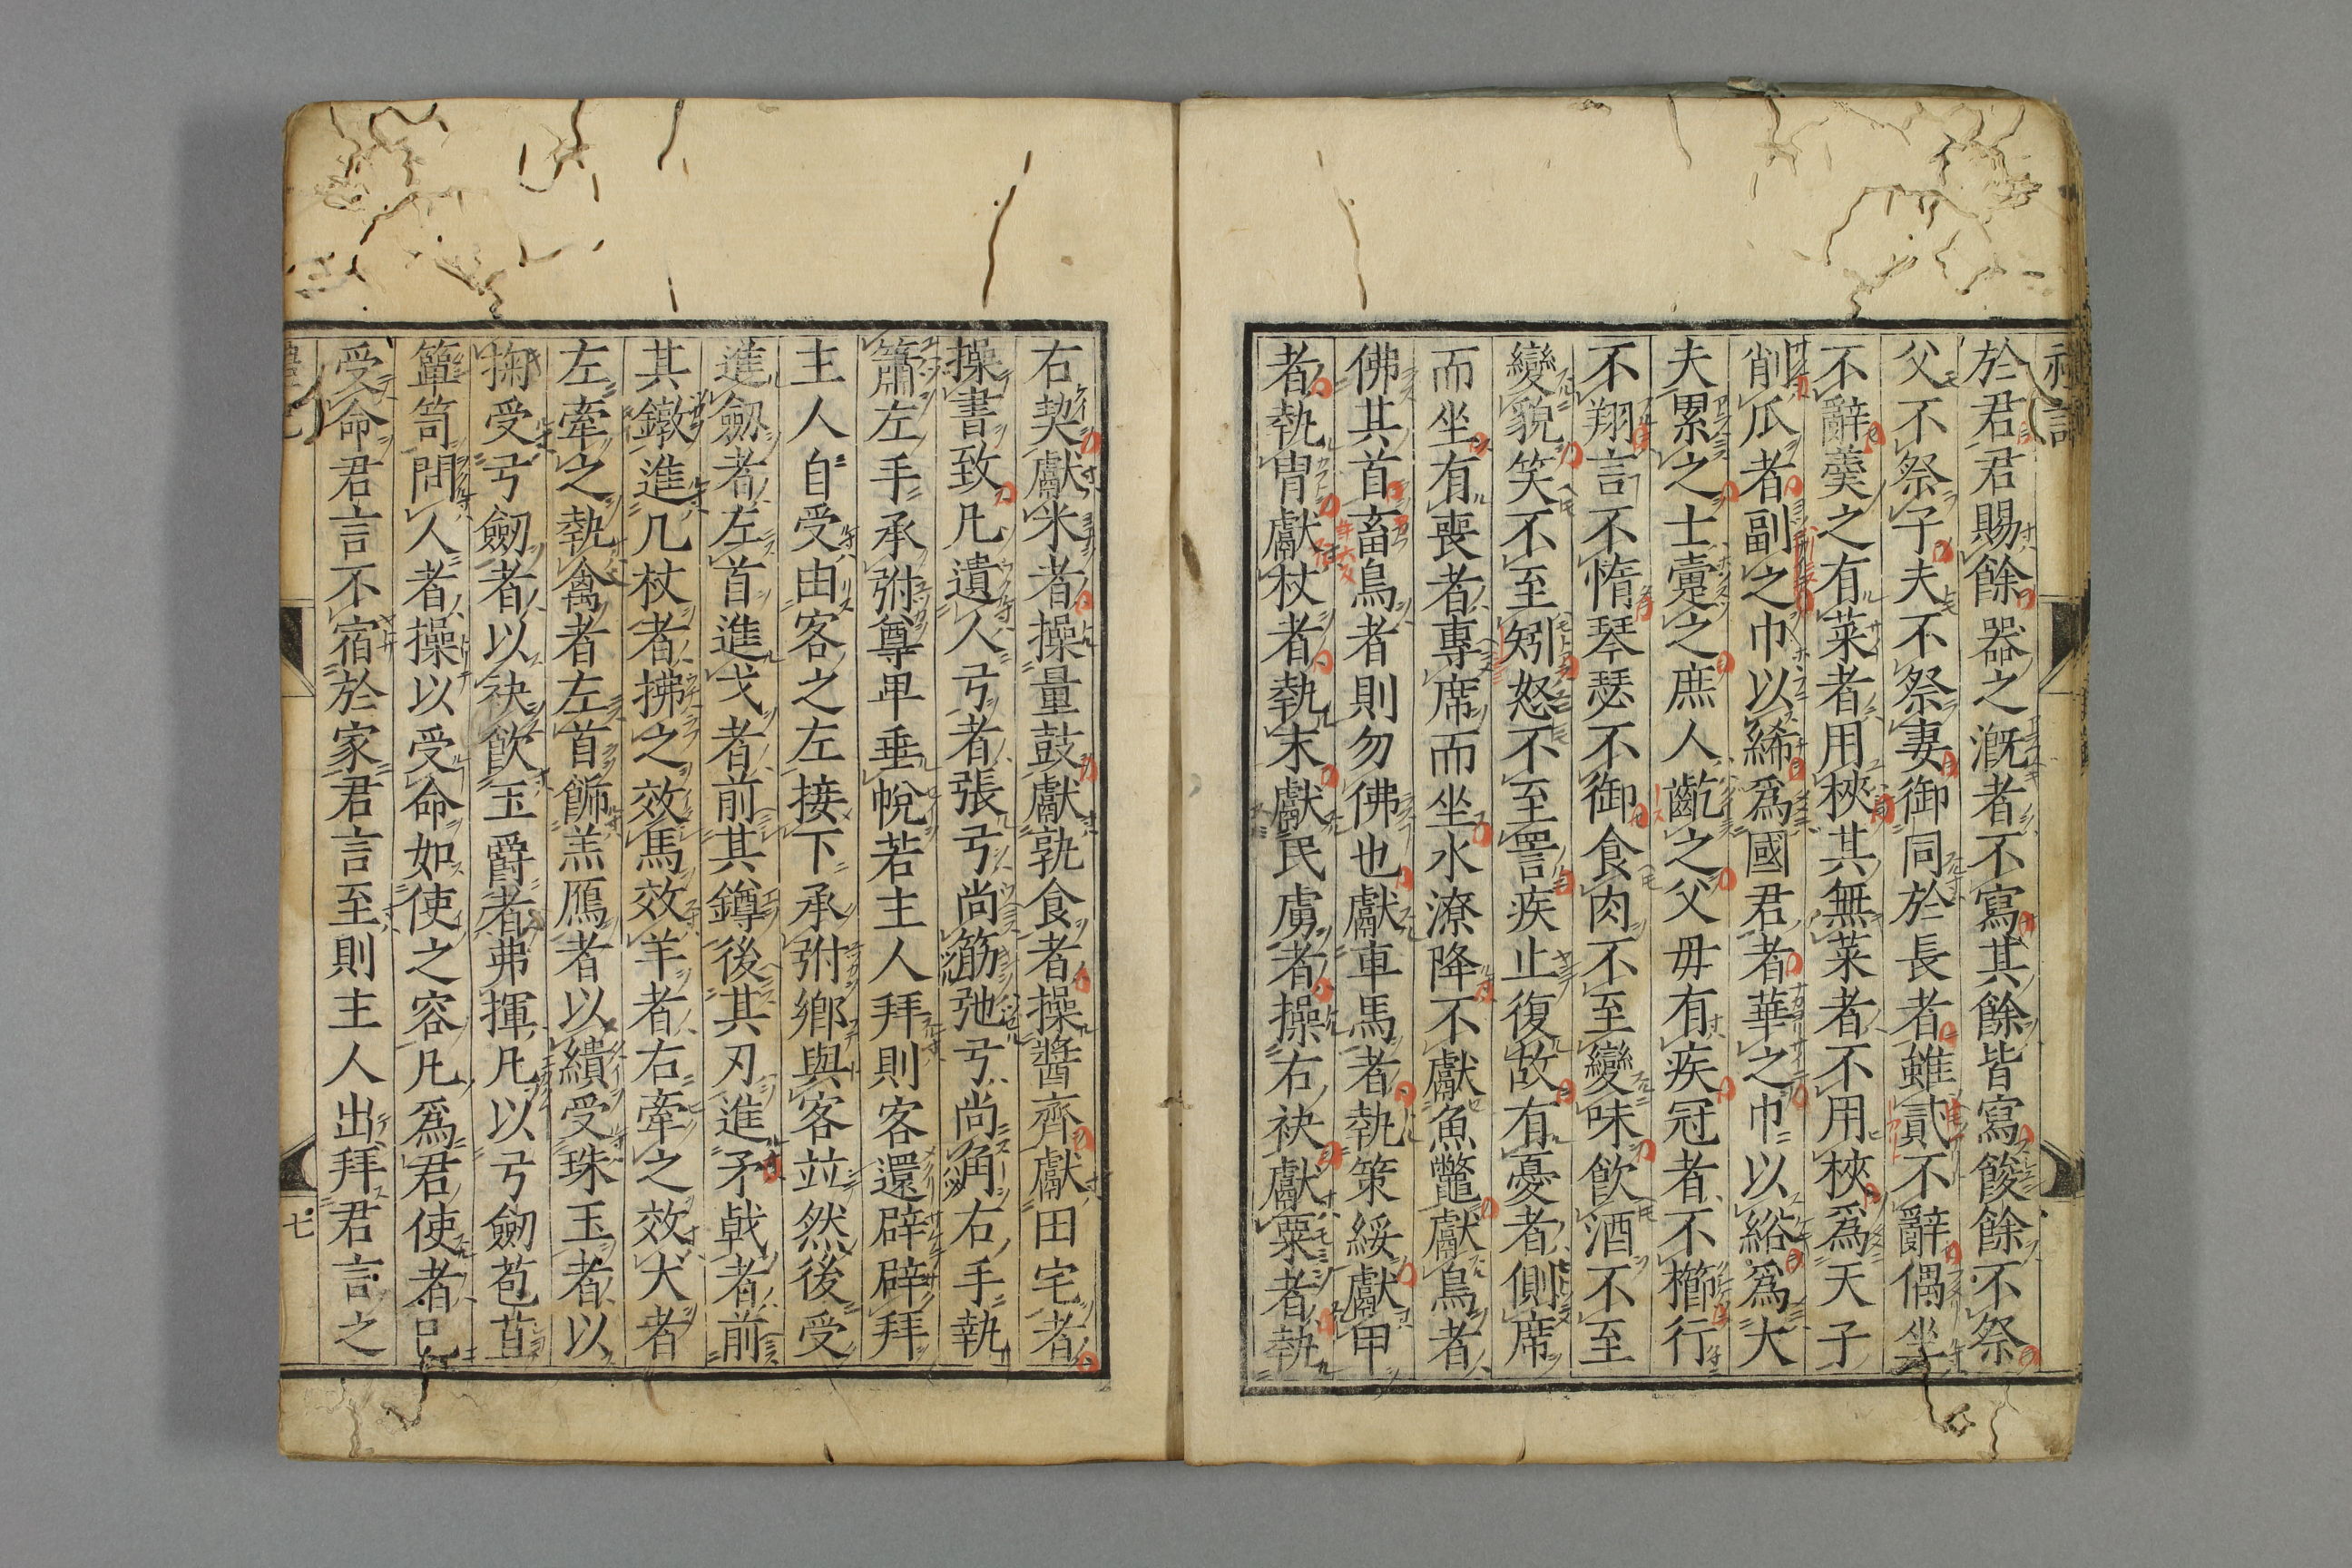 禮記
於君君賜餘器之漑者不寫其餘皆寫餕餘不祭
父不祭子夫不祭妻御同於長者雖貳不辭偶坐
不辭羹之有菜者用梜其無菜者不用梜爲天子
削瓜者副之巾以絺爲國君者華之巾以綌爲大
夫累之士疐之庶人齕之父毋有疾冠者不櫛行
不翔言不惰琴瑟不御食肉不至變味飮酒不至
變貌笑不至矧怒不至詈疾止復故有憂者側席
而坐有喪者專席而坐水潦降不獻魚鼈獻鳥者
佛其首畜鳥者則勿佛也獻車馬者執策綏獻甲
者執冑獻杖者執末獻民虜者操右袂獻粟者執
右契獻米者操量鼓獻孰食者操醬齊獻田宅者
操書致凡遺人弓者張弓尚筋弛弓尚角右手執
簫左手承弣尊卑垂帨若主人拜則客還辟辟拜
主人自受由客之左接下承弣鄕與客竝然後受
進劒者左首進戈者前其鐏後其刃進矛戟者前
其鐓進几杖者拂之效馬效羊者右牽之效犬者
左牽之執禽者左首飾羔鴈者以繢受珠玉者以
掬受弓劒者以袂飮玉爵者弗揮凡以弓劒苞苴
簞笥問人者操以受命如使之容凡爲君使者已
受命君言不宿於家君言至則主人出拜君言之
七